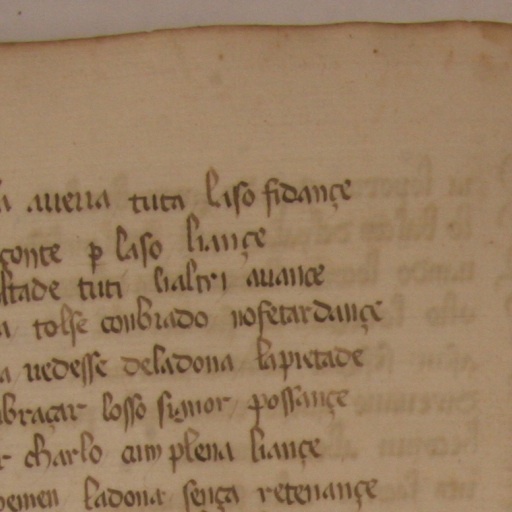 auerra tuta laso fidançe
çonte p laso liançe
ltade tuti lialtri auance
a tolse conbrado nosetardançe
a uedesse deladona lapietade
braçar losso signor possançe
r charlo cum plena liançe
ladona sença retenançe